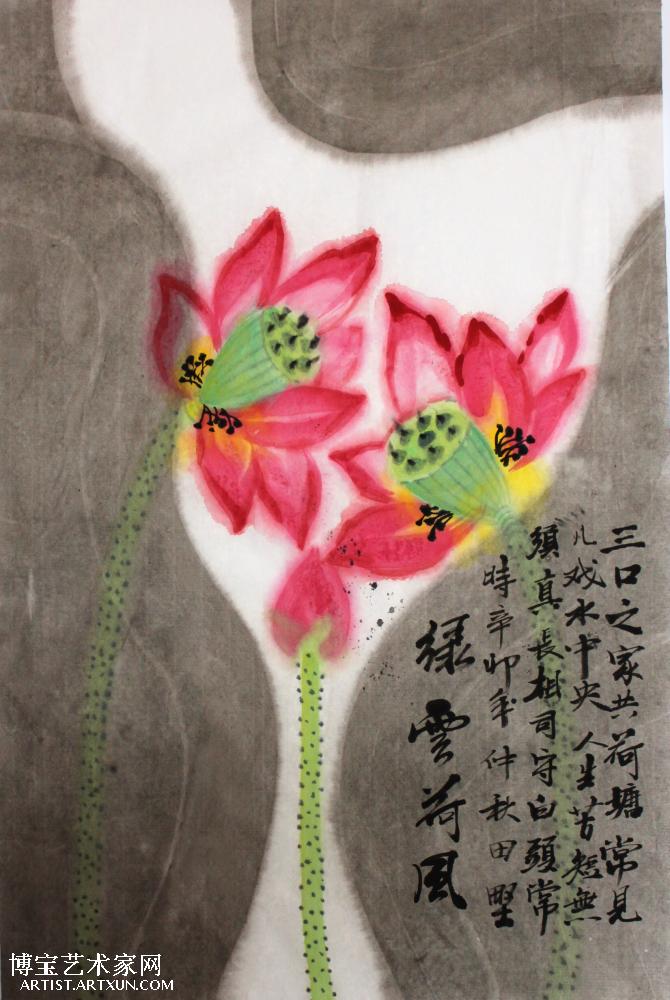 三口之家共荷塘常見
儿戏水中央人生苦短無
須真長相司守白頭常
時辛卯年仲秋田野
緑雲荷風
博宝艺术家网
ARTIST.ARTXUN.COM